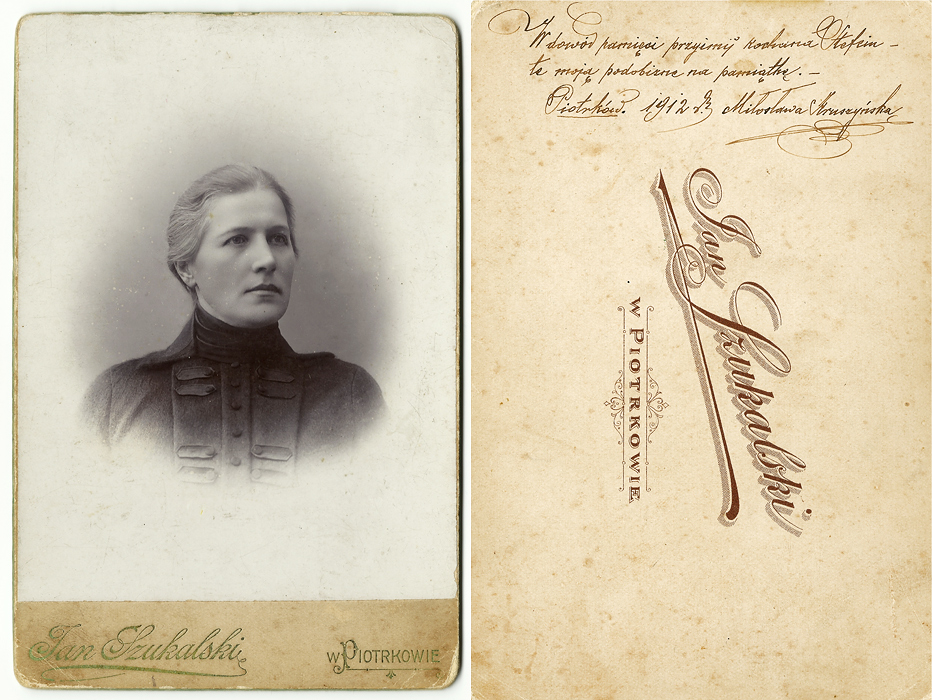 Jan Szukalski
w Piotrkowie
W dowód pamięci przyjmij kochana Stefciu –
tę moją podobiznę na pamiątkę. –
Piotrków. 1912 r. Miłosława Kruszyńska
Jan Szukalski
w Piotrkowie